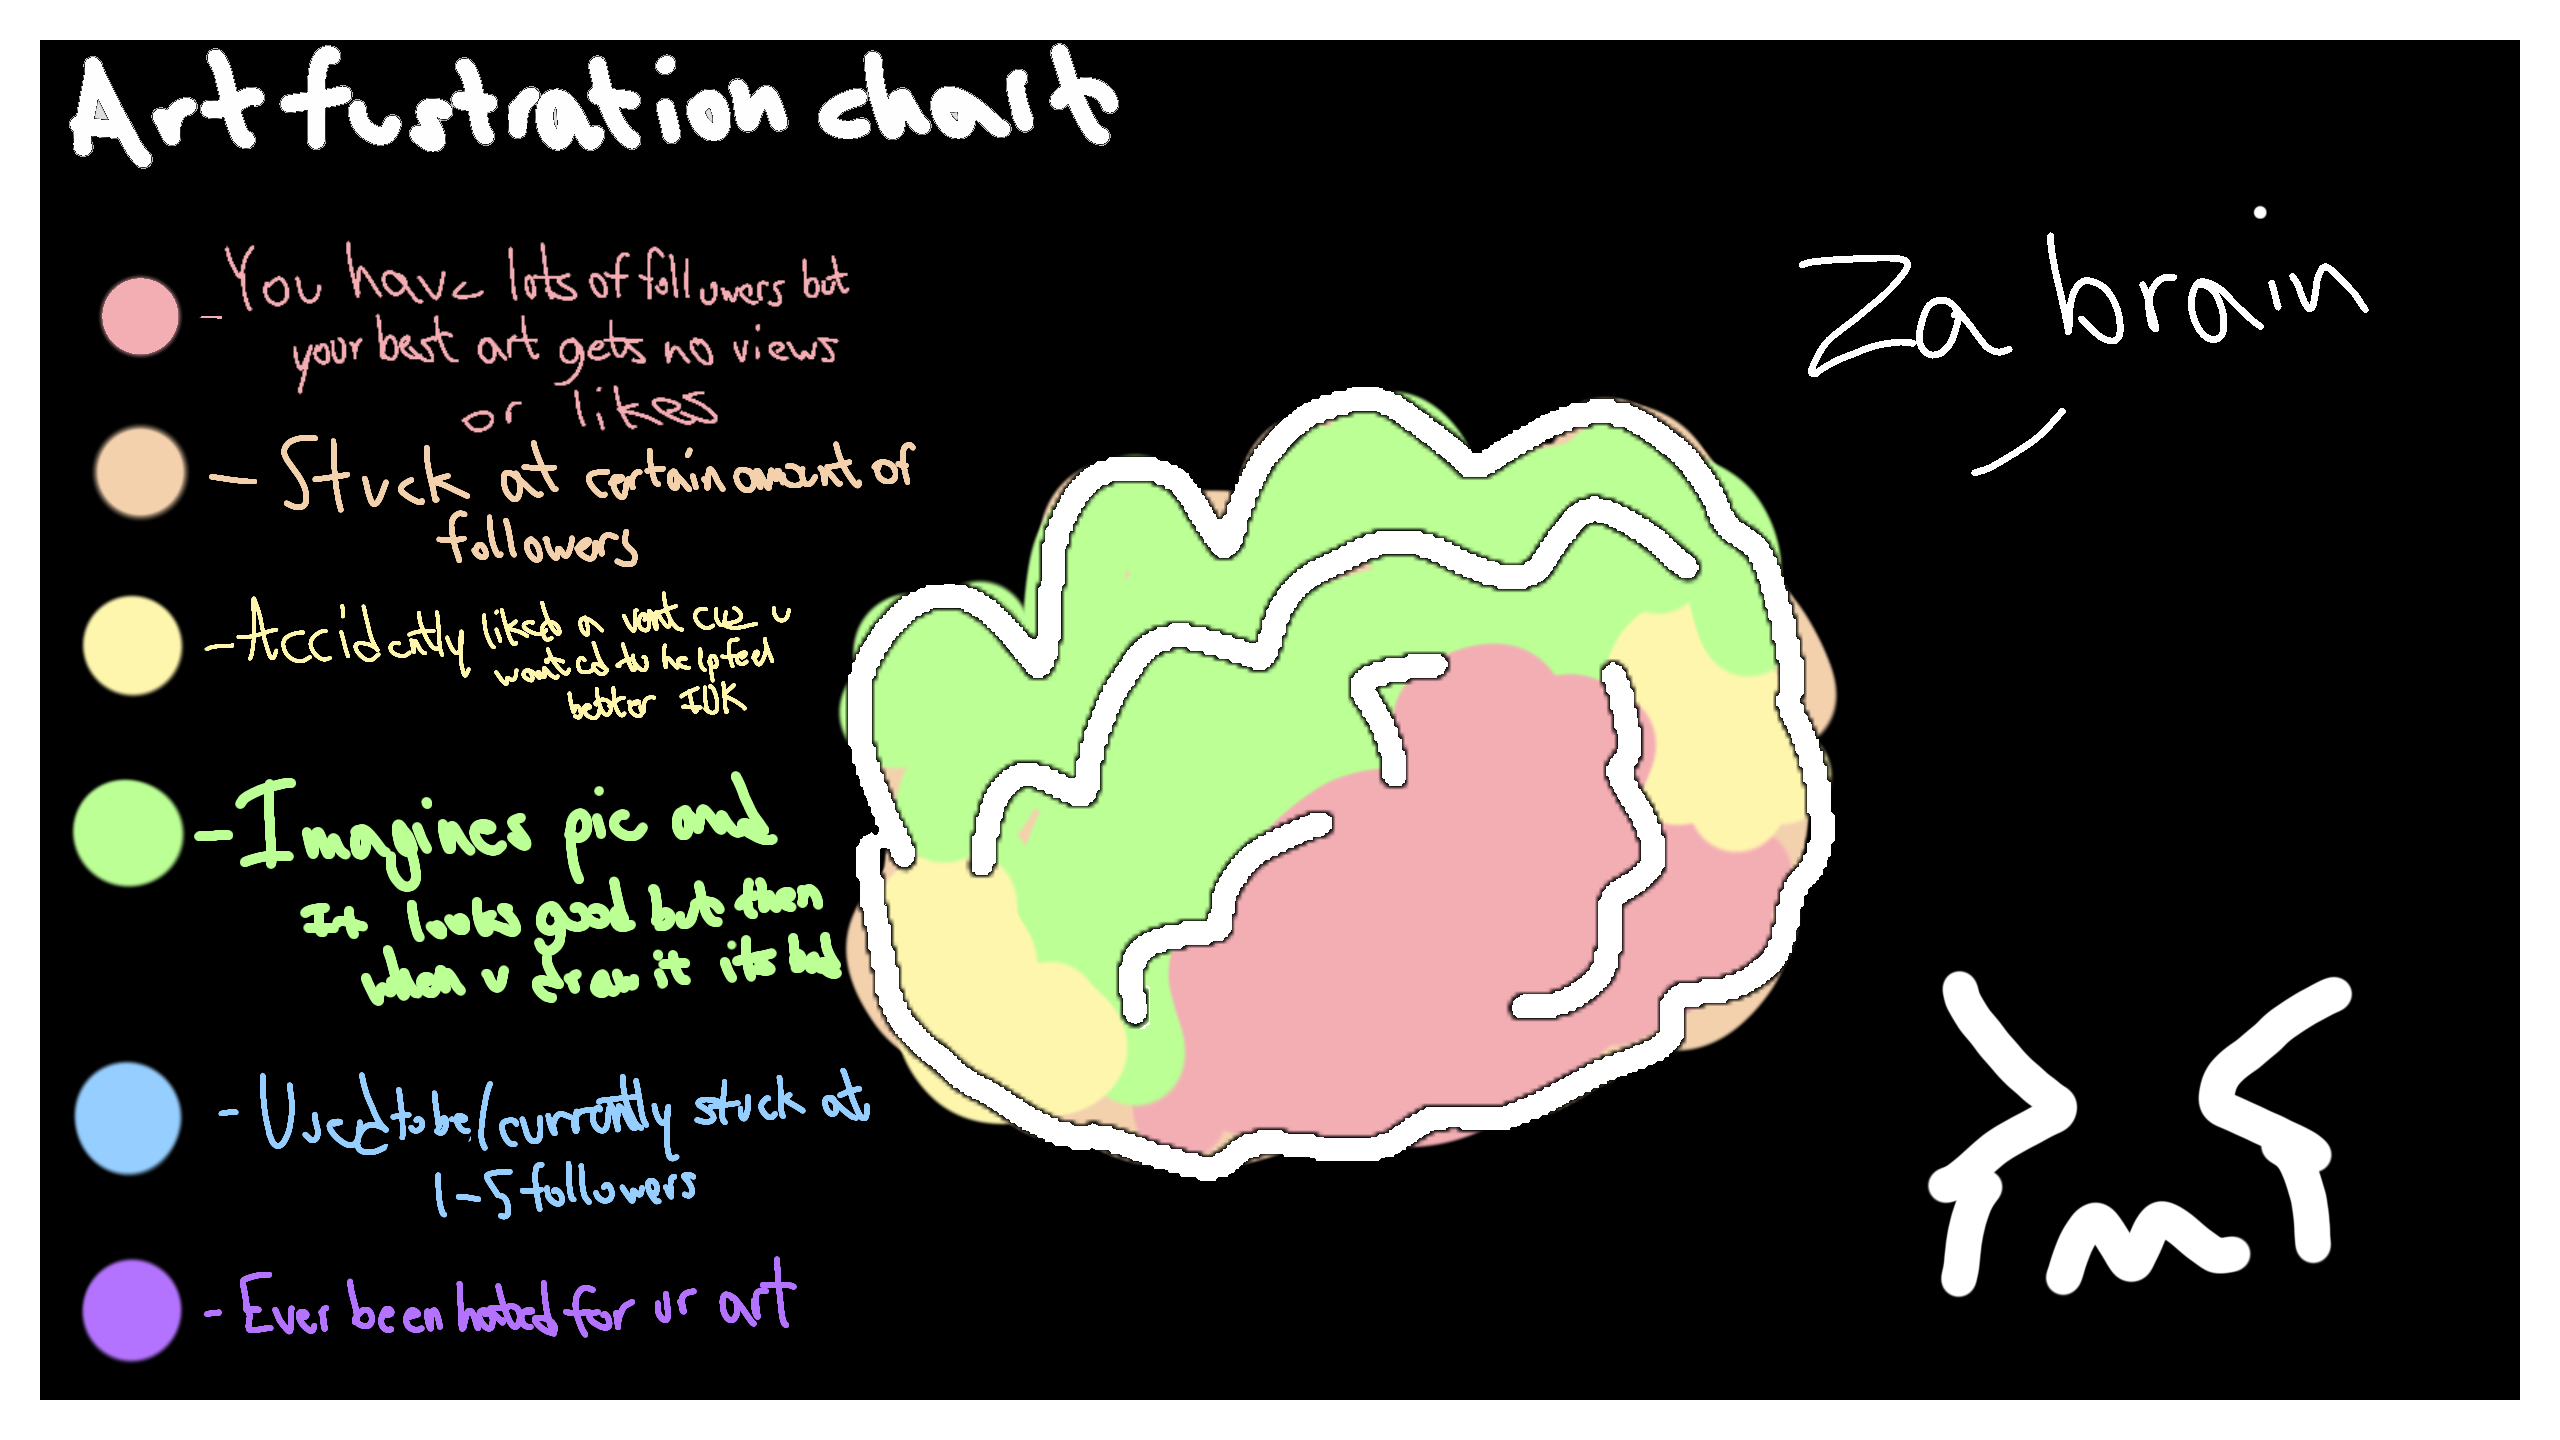 Art fustration chart
Za brain
- You have lots of followers but
your best art gets no views
or likes
- Stuck at certain amount of
followers
- Accidently liked a vent cuz u
wanted to help feel
better IDK
- Imagines pic and
It looks good but then
when u draw it its bad
- Used to be/currently stuck at
1-5 followers
- Ever been hated for ur art